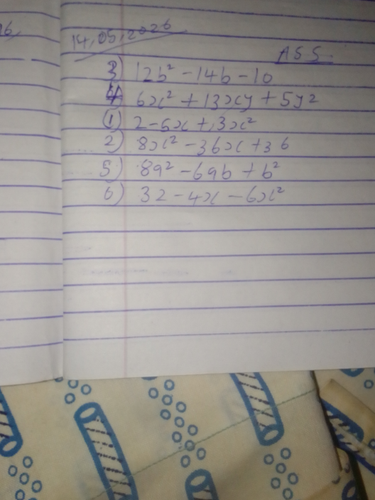 14,05,2026
ASS
3) 12b² - 14b - 10
4 6x² + 13xy + 5y²
1) 2 - 5x + 3x²
2) 8x² - 36x + 36
5) 8a² - 6ab + b²
6) 32 - 4x - 6x²